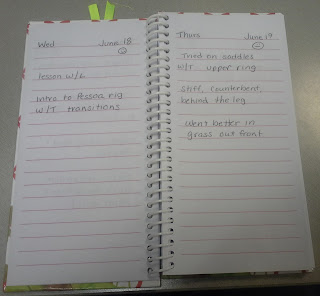 Wed June 18
lesson w/L
Intro to Pessoa rig
W/T transitions
Thurs June 19
Tried on saddles
W/T upper ring
Stiff, counterbent,
behind the leg
Went better in
grass out front